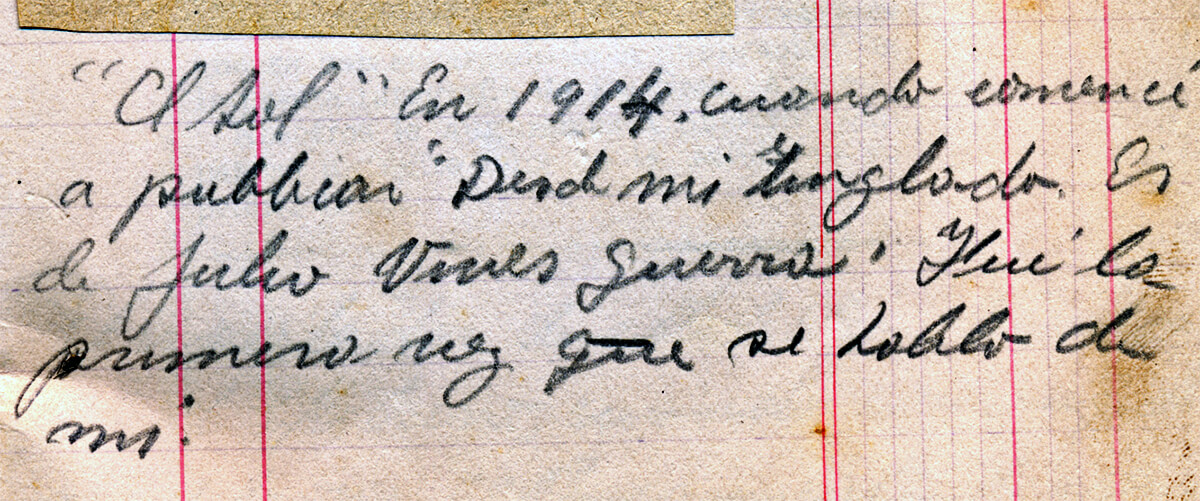 "El Sol" En 1914, cuando comencé
a publicar "Desde mi tinglado. Es
de Julio Vives Guerra. Fué la
primera vez que se habló de
mi.